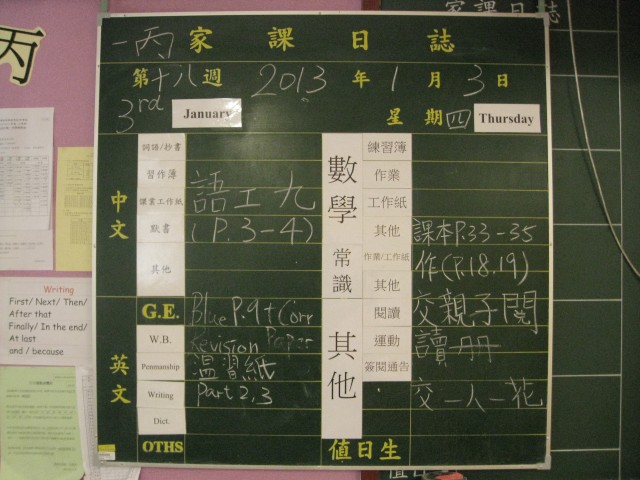 丙
家課日誌
一丙 家課日誌
第十八週 2013年1月3日
3rd January 星期四 Thursday
中文
詞語/抄書
習作簿
讀默書
其他
語工九
(P.3-4)
數學
練習簿
作業
工作紙
其他
常識
作業/工作紙
其他
課本P.33-35
作(P.18.19)
英文
G.E.
W.B.
Penmanship
Writing
Dict.
OTHS
Blue P.9+Corr
Revision Paper
溫習紙
Part 2,3
其他
閱讀
運動
簽閱通告
交親子閱
讀冊
交一人一花
值日生
Writing
First/ Next/ Then/
After that
Finally/ In the end/
At last
and / because